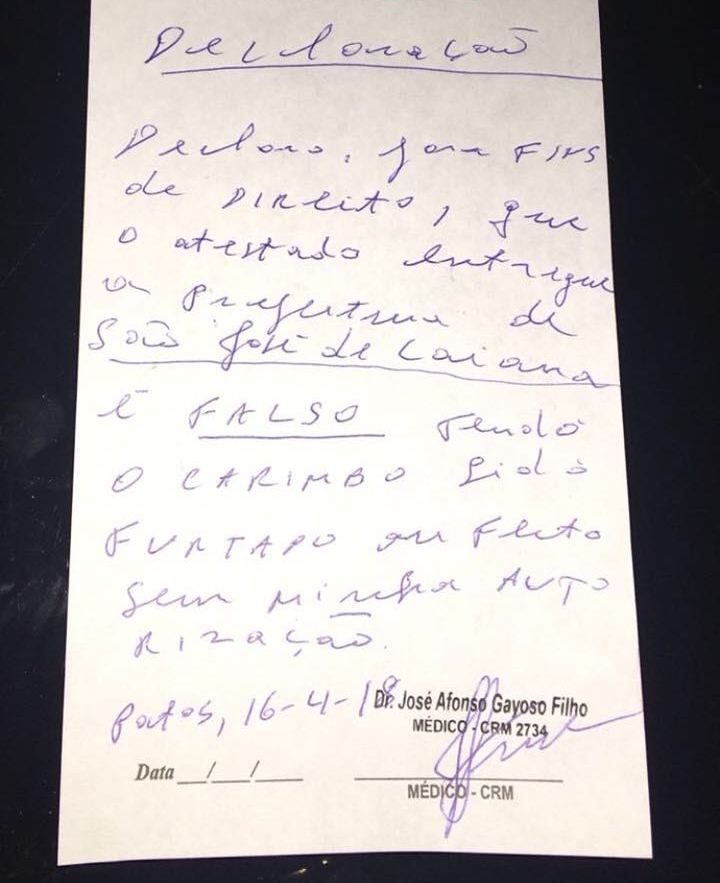 Declaração
Declaro, para FINS
de DIREITO, que
o atestado entregue
a Prefeitura de
São José de Caiana
é FALSO tendo
O CARIMBO sido
FURTADO ou feito
sem minha AUTO
RIZAÇÃO.
Patos, 16-4-18
Dr. José Afonso Gayoso Filho
MÉDICO - CRM 2734
Data __/__/__
MÉDICO - CRM